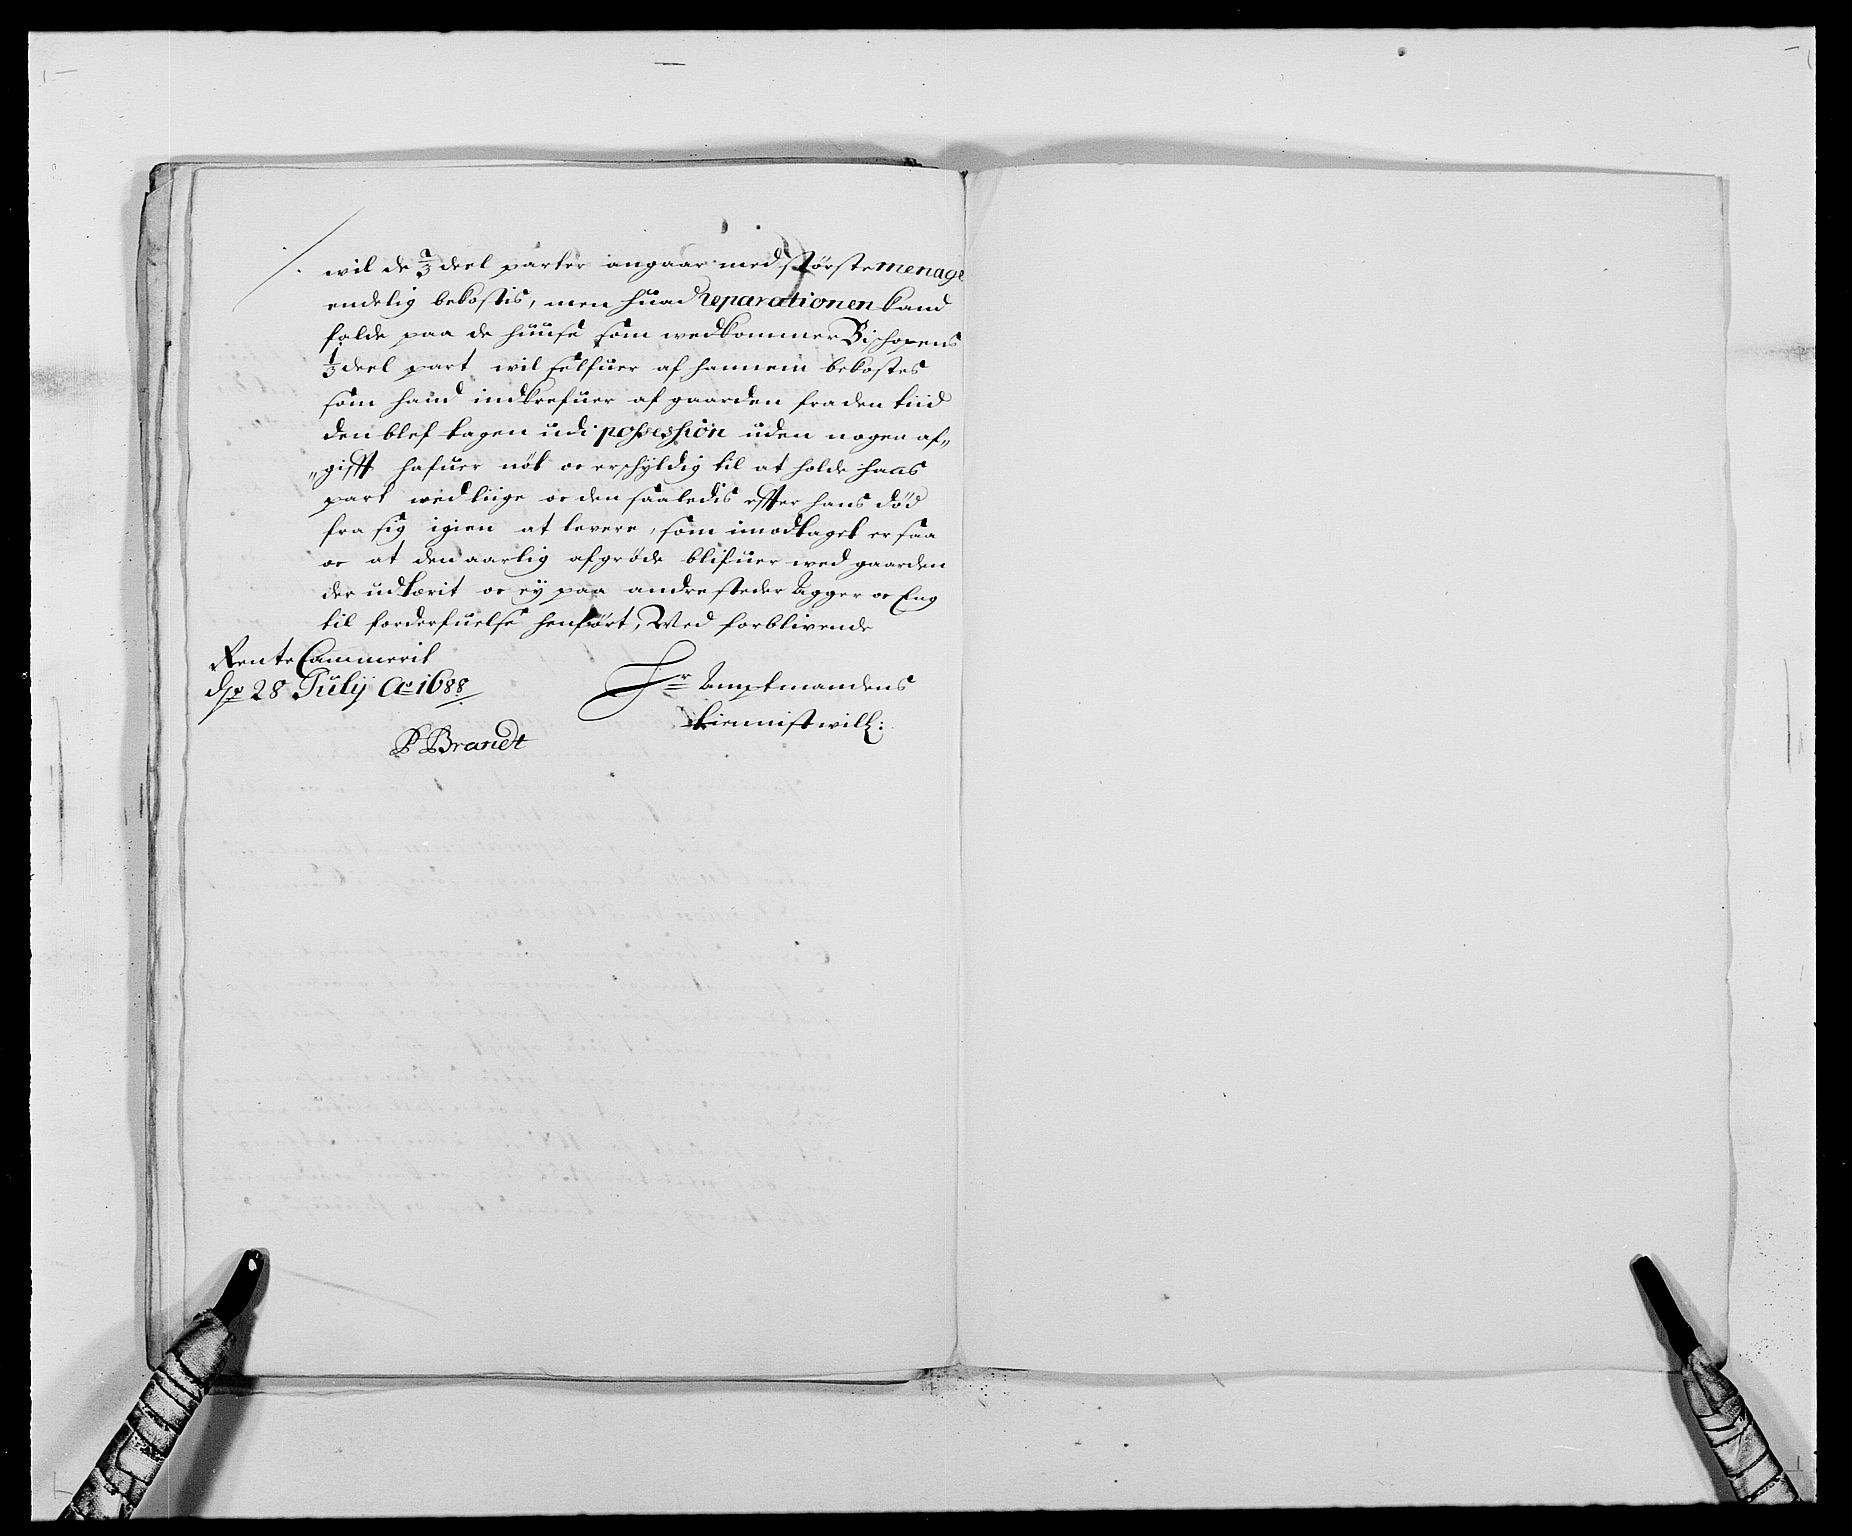 wil de 2/3 deel parter angaar med største menage
endelig bekostis, men huad reparationen kand
falde paa de huuse som wedkommer Bischopens
1/3 deel part wil selfuer af hannem bekostes
som hand indkrefuer af gaarden fra den tiid
den blef tagen udi possession uden nogen af„
„gifft hafuer nót oc er schyldig til at holde haas
part wedliige oc den saaledis effter hans død
fra sig igien at levere, som imodtaget er saa
oc at den aarlig afgrøde blifuer wed gaarden
der udkørit oc ey paa andre steder Agger oc Eng
til forderfuelse henført, Wed forblivende
Rente Cammerit
dn 28 Julij Ao 1688
Hr Amptmandens
tienistwill:
P Brandt